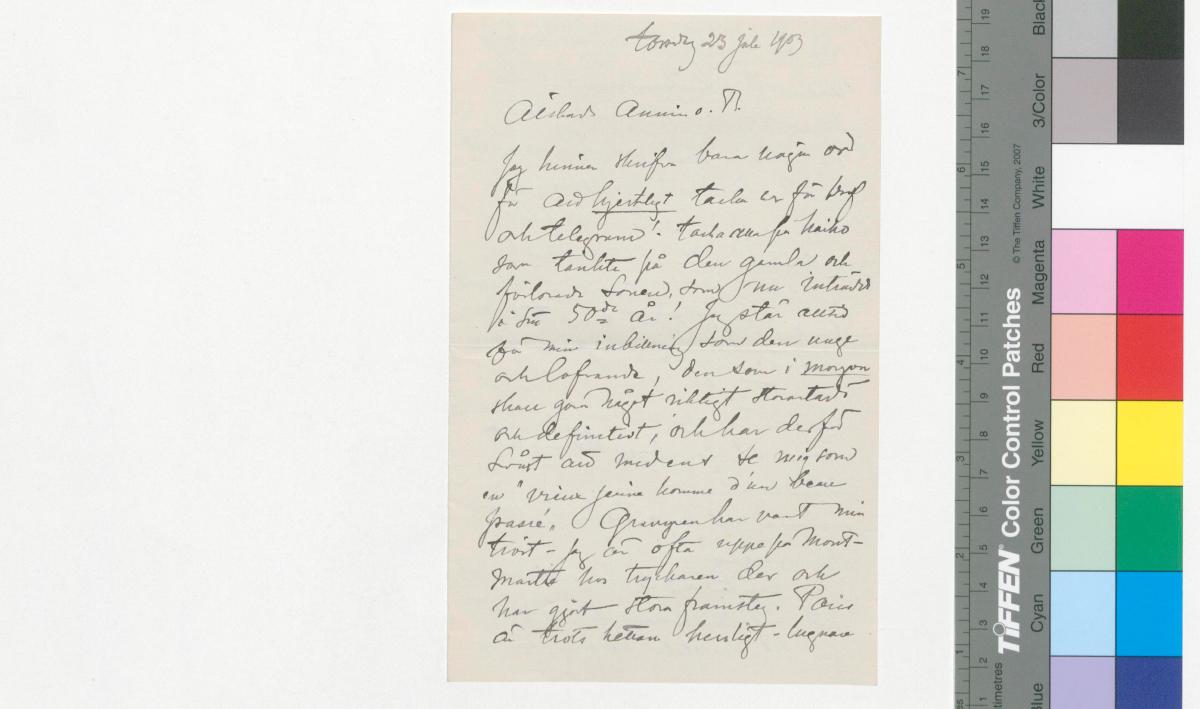 torsdag 23 juli 1903
Älskade Annie o. P.
Jag hinner skrifva bara några ord
för att hjertligt tacka er för bref
och telegram! tacka alla på Haiko
som tänkte på den gamla och
förlorade sonen, som nu inträdde
i sitt 50de år! Jag står alltid
för min inbillning som den unge
och lofvande, den som i morgon
skall göra något riktigt storartadt
och definitivt, och har derför
svårt att med ens se mig som
en "vieux jeune homme d'un beau
passé". Gravyren har varit min
tröst - jag är ofta uppe på Mont-
martre hos tryckaren der och
har gjort stora framsteg. Paris
är trots hettan herrligt - lugnare
19
18
17
16
15
14
13
12
11
10
9
8
7
6
5
4
3
2
1
7
6
5
4
3
2
1
© The Tiffen Company, 2007
TIFFEN® Color Control Patches
Black
3/Color
White
Magenta
Red
Yellow
Green
Cyan